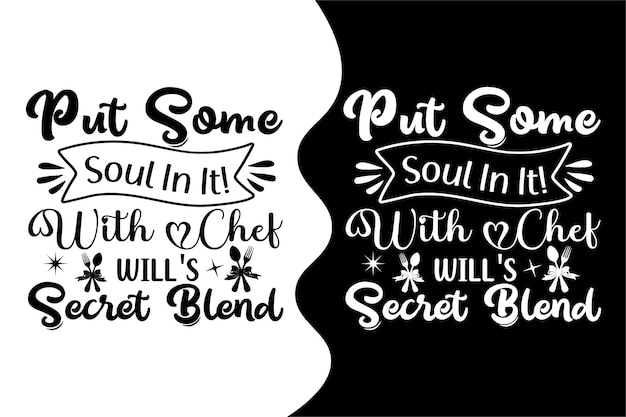 Put Some
Soul In It!
With Chef
WILL'S
Secret Blend
Put Some
Soul In It!
With Chef
WILL'S
Secret Blend